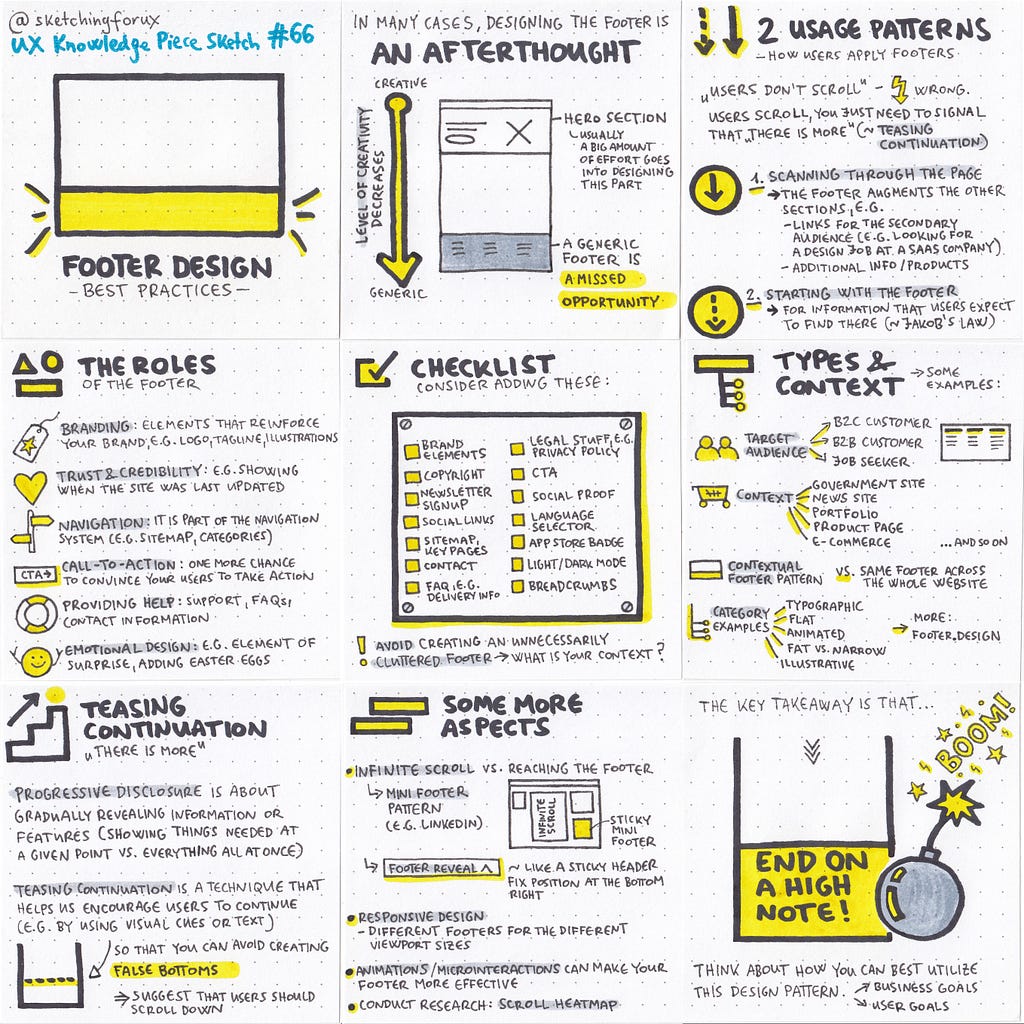 @sketchingforux
UX Knowledge Piece Sketch #66
FOOTER DESIGN
-BEST PRACTICES-
IN MANY CASES, DESIGNING THE FOOTER IS
AN AFTERTHOUGHT
CREATIVE
LEVEL OF CREATIVITY
DECREASES
GENERIC
HERO SECTION
USUALLY
A BIG AMOUNT
OF EFFORT GOES
INTO DESIGNING
THIS PART
A GENERIC
FOOTER IS
A MISSED
OPPORTUNITY
2 USAGE PATTERNS
-HOW USERS APPLY FOOTERS
„USERS DON'T SCROLL" - WRONG.
USERS SCROLL, YOU JUST NEED TO SIGNAL
THAT „THERE IS MORE" (~ TEASING
CONTINUATION)
1. SCANNING THROUGH THE PAGE
→ THE FOOTER AUGMENTS THE OTHER
SECTIONS, E.G.
-LINKS FOR THE SECONDARY
AUDIENCE (E.G. LOOKING FOR
A DESIGN JOB AT A SAAS COMPANY)
- ADDITIONAL INFO/PRODUCTS
2. STARTING WITH THE FOOTER
→ FOR INFORMATION THAT USERS EXPECT
TO FIND THERE (~ JAKOB'S LAW)
THE ROLES
OF THE FOOTER
BRANDING: ELEMENTS THAT REINFORCE
YOUR BRAND, E.G. LOGO, TAGLINE, ILLUSTRATIONS
TRUST & CREDIBILITY: E.G. SHOWING
WHEN THE SITE WAS LAST UPDATED
NAVIGATION: IT IS PART OF THE NAVIGATION
SYSTEM (E.G. SITEMAP, CATEGORIES)
CTA→
CALL-TO-ACTION: ONE MORE CHANCE
TO CONVINCE YOUR USERS TO TAKE ACTION
PROVIDING HELP: SUPPORT, FAQs,
CONTACT INFORMATION
EMOTIONAL DESIGN: E.G. ELEMENT OF
SURPRISE, ADDING EASTER EGGS
CHECKLIST
CONSIDER ADDING THESE:
BRAND
ELEMENTS
COPYRIGHT
NEWSLETTER
SIGNUP
SOCIAL LINKS
SITEMAP,
KEY PAGES
CONTACT
FAQ, E.G.
DELIVERY INFO
LEGAL STUFF, E.G.
PRIVACY POLICY
CTA
SOCIAL PROOF
LANGUAGE
SELECTOR
APP STORE BADGE
LIGHT/DARK MODE
BREADCRUMBS
! AVOID CREATING AN UNNECESSARILY
CLUTTERED FOOTER → WHAT IS YOUR CONTEXT?
TYPES &
CONTEXT
→ SOME
EXAMPLES:
TARGET
AUDIENCE
B2C CUSTOMER
B2B CUSTOMER
JOB SEEKER
CONTEXT
GOVERNMENT SITE
NEWS SITE
PORTFOLIO
PRODUCT PAGE
E-COMMERCE
...AND SO ON
CONTEXTUAL
FOOTER PATTERN
VS. SAME FOOTER ACROSS
THE WHOLE WEBSITE
CATEGORY
EXAMPLES
TYPOGRAPHIC
FLAT
ANIMATED
FAT VS. NARROW
ILLUSTRATIVE
→ MORE:
FOOTER.DESIGN
TEASING
CONTINUATION
„THERE IS MORE"
PROGRESSIVE DISCLOSURE IS ABOUT
GRADUALLY REVEALING INFORMATION OR
FEATURES (SHOWING THINGS NEEDED AT
A GIVEN POINT VS. EVERYTHING ALL AT ONCE)
TEASING CONTINUATION IS A TECHNIQUE THAT
HELPS US ENCOURAGE USERS TO CONTINUE
(E.G. BY USING VISUAL CUES OR TEXT)
SO THAT YOU CAN AVOID CREATING
FALSE BOTTOMS
⇒ SUGGEST THAT USERS SHOULD
SCROLL DOWN
SOME MORE
ASPECTS
INFINITE SCROLL VS. REACHING THE FOOTER
MINI FOOTER
PATTERN
(E.G. LINKEDIN)
INFINITE
SCROLL
STICKY
MINI
FOOTER
FOOTER REVEAL ^
~ LIKE A STICKY HEADER
FIX POSITION AT THE BOTTOM
RIGHT
RESPONSIVE DESIGN
- DIFFERENT FOOTERS FOR THE DIFFERENT
VIEWPORT SIZES
ANIMATIONS/MICROINTERACTIONS CAN MAKE YOUR
FOOTER MORE EFFECTIVE
CONDUCT RESEARCH: SCROLL HEATMAP
THE KEY TAKEAWAY IS THAT...
BOOM!
END ON
A HIGH
NOTE!
THINK ABOUT HOW YOU CAN BEST UTILIZE
THIS DESIGN PATTERN.
BUSINESS GOALS
USER GOALS